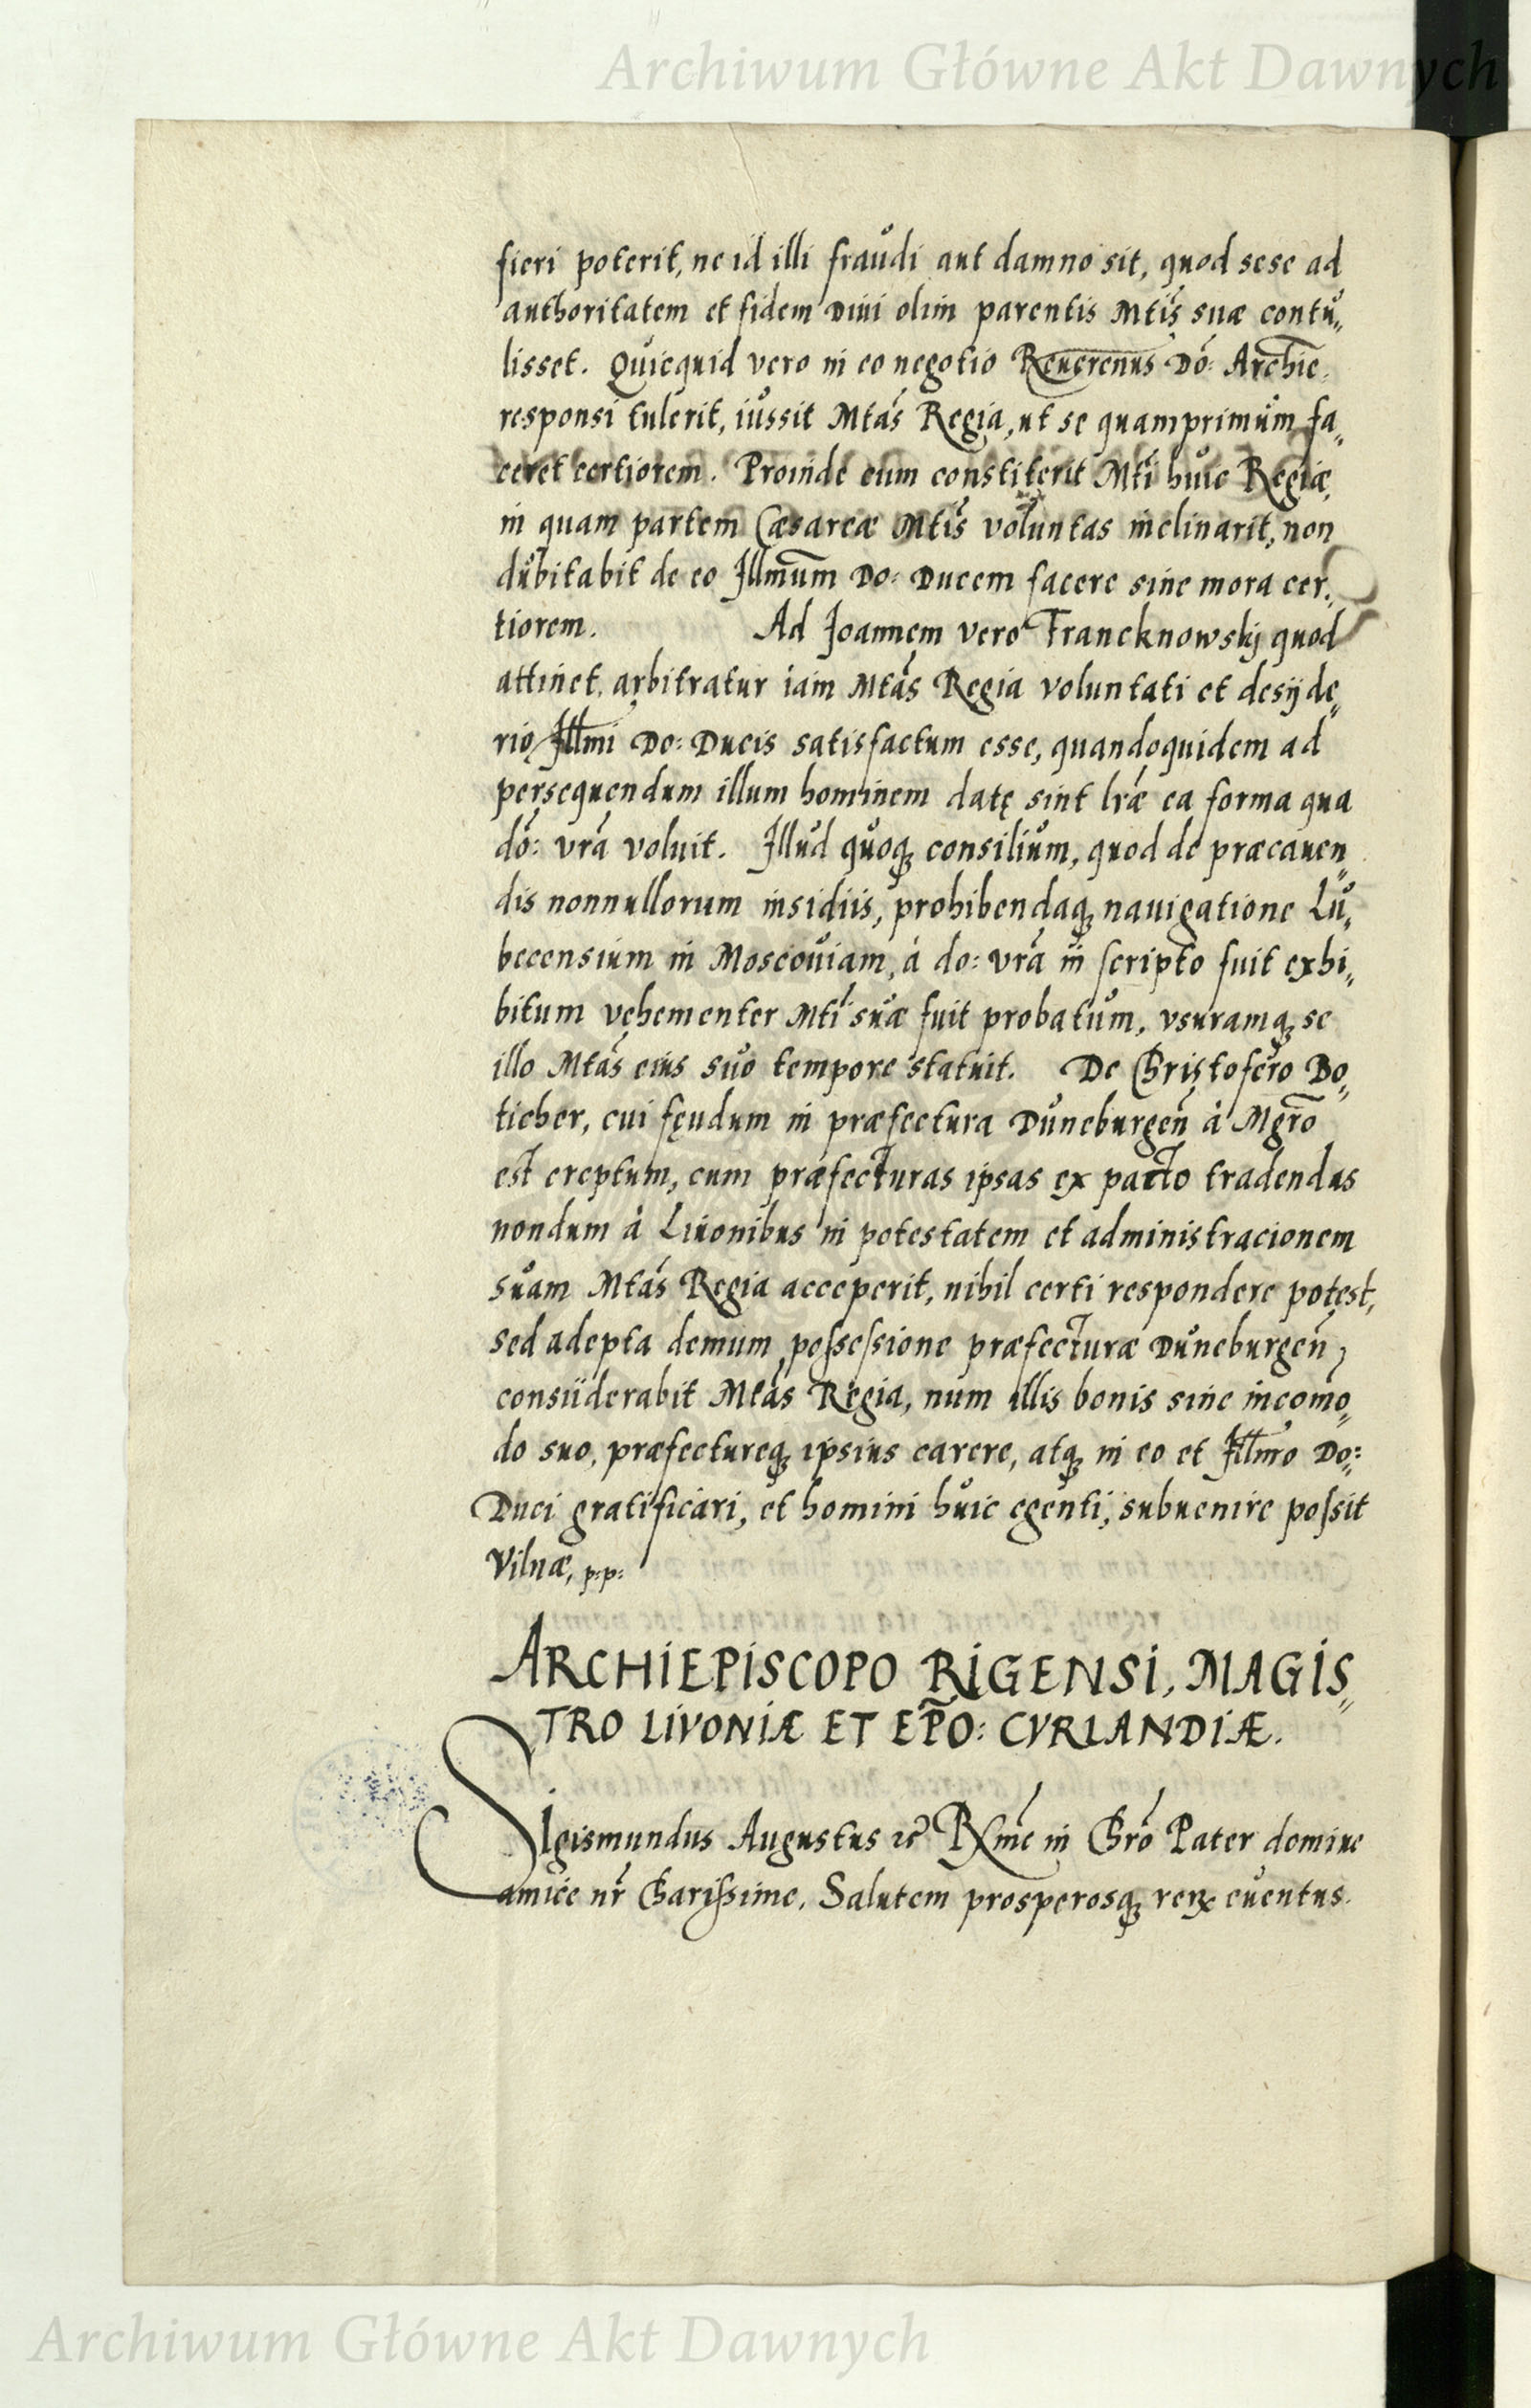 Archiwum Główne Akt Dawnych
fieri poterit, ne id illi fraŭdi aut damno sit, quod sese ad
authoritatem et fidem Diui olim parentis Mtis suæ contŭ„
lisset. Quicquid vero in eo negotio Reuerenus Do: Archie.
responsi tulerit, iŭssit Mtas Regia, ut se quamprimŭm fa„
ceret certiorem. Proinde cum constiterit Mti hŭic Regiæ,
in quam partem Cæsareæ Mtis volŭntas inclinarit, non
dŭbitabit de eo Illmum Do: Ducem facere sine mora cer„
tiorem. Ad Joannem vero Francknowskj quod
attinet, arbitratur iam Mtas Regia voluntati et desijde„
rio Illmi Do: Ducis satisfactum esse, quandoquidem ad
persequendum illum hominem datę sint lræ ea forma qua
do: vra voluit. Illŭd quŏq; consiliŭm, quod de præcauen„
dis nonnullorum insidiis, prohibendaq; nauigatione Lŭ„
becensium in Moscoŭiam, à do: vra in scripto fuit exhi„
bitum vehementer Mti sŭæ fuit probatŭm, vsuramq; se
illo Mtas eius sŭo tempore statuit. De Christofero Bo„
ticher, cui fęudum in præfectura Dŭneburgen̄ à Mgro
est ereptum, cum præfecturas ipsas ex pacto tradendas
nondum à Liuonibus in potestatem et administracionem
sŭam Mtas Regia acceperit, nihil certi respondere potest,
sed adepta demum possessione præfecturæ Dŭneburgen̄,
consiiderabit Mtas Regia, num illis bonis sine incomo„
do suo, præfectureq; ipsius carere, atq; in eo et Illmo Do:
Duci gratificari, et homini hŭic egenti, subuenire possit
Vilnæ, p:p:
ARCHIEPISCOPO RIGENSI, MAGIS„
TRO LIVONIÆ ET EP̄O: CVRLANDIÆ.
Sigismundus Augustus &c Rxme in Chro Pater domine
amice nr̄ Charissime. Salutem prosperosq; rerꝝ eŭentus.
Archiwum Główne Akt Dawnych